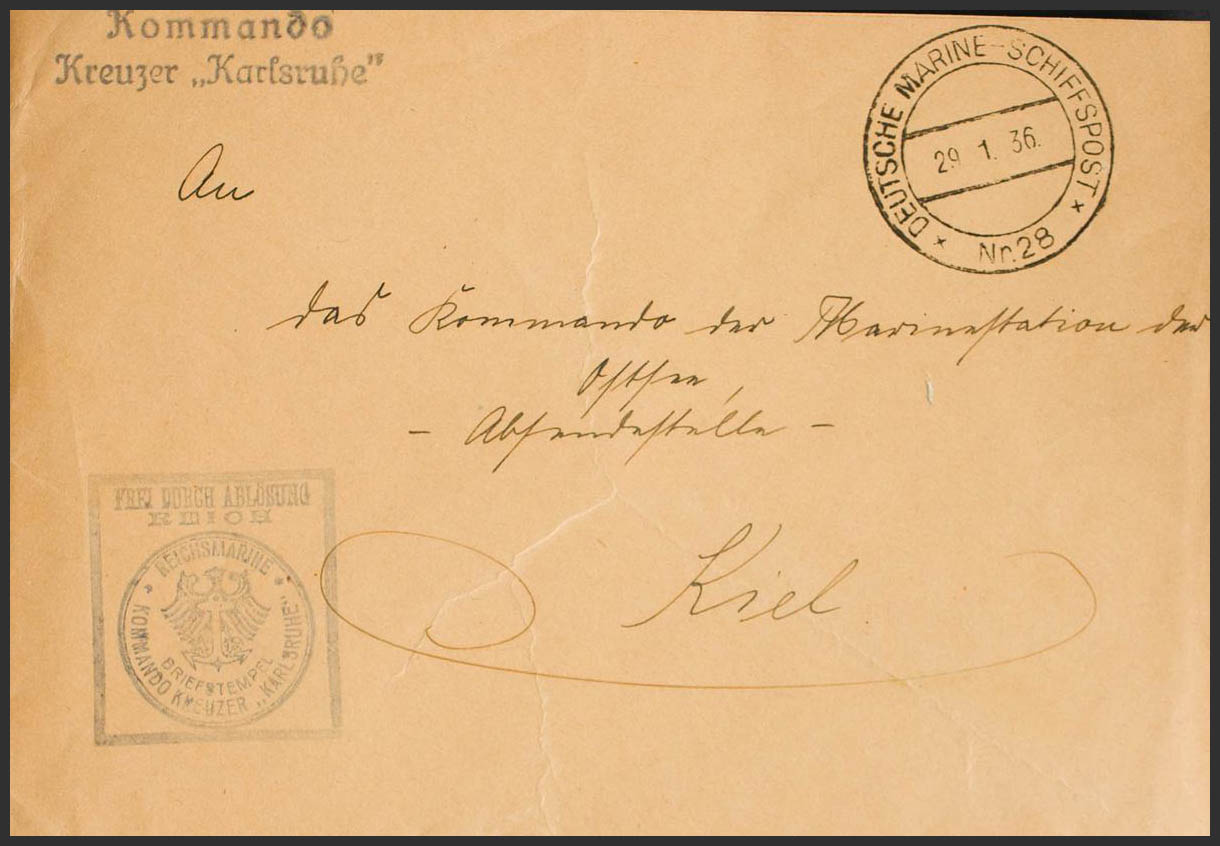 Kommando
Kreuzer „Karlsruhe”
DEUTSCHE MARINE-SCHIFFSPOST
29 1. 36.
Nr.28
An
das Kommando der Marinestation der
Ostsee,
- Absendestelle -
Kiel
FREI DURCH ABLÖSUNG
REICH
REICHSMARINE
BRIEFSTEMPEL
KOMMANDO KREUZER „KARLSRUHE”